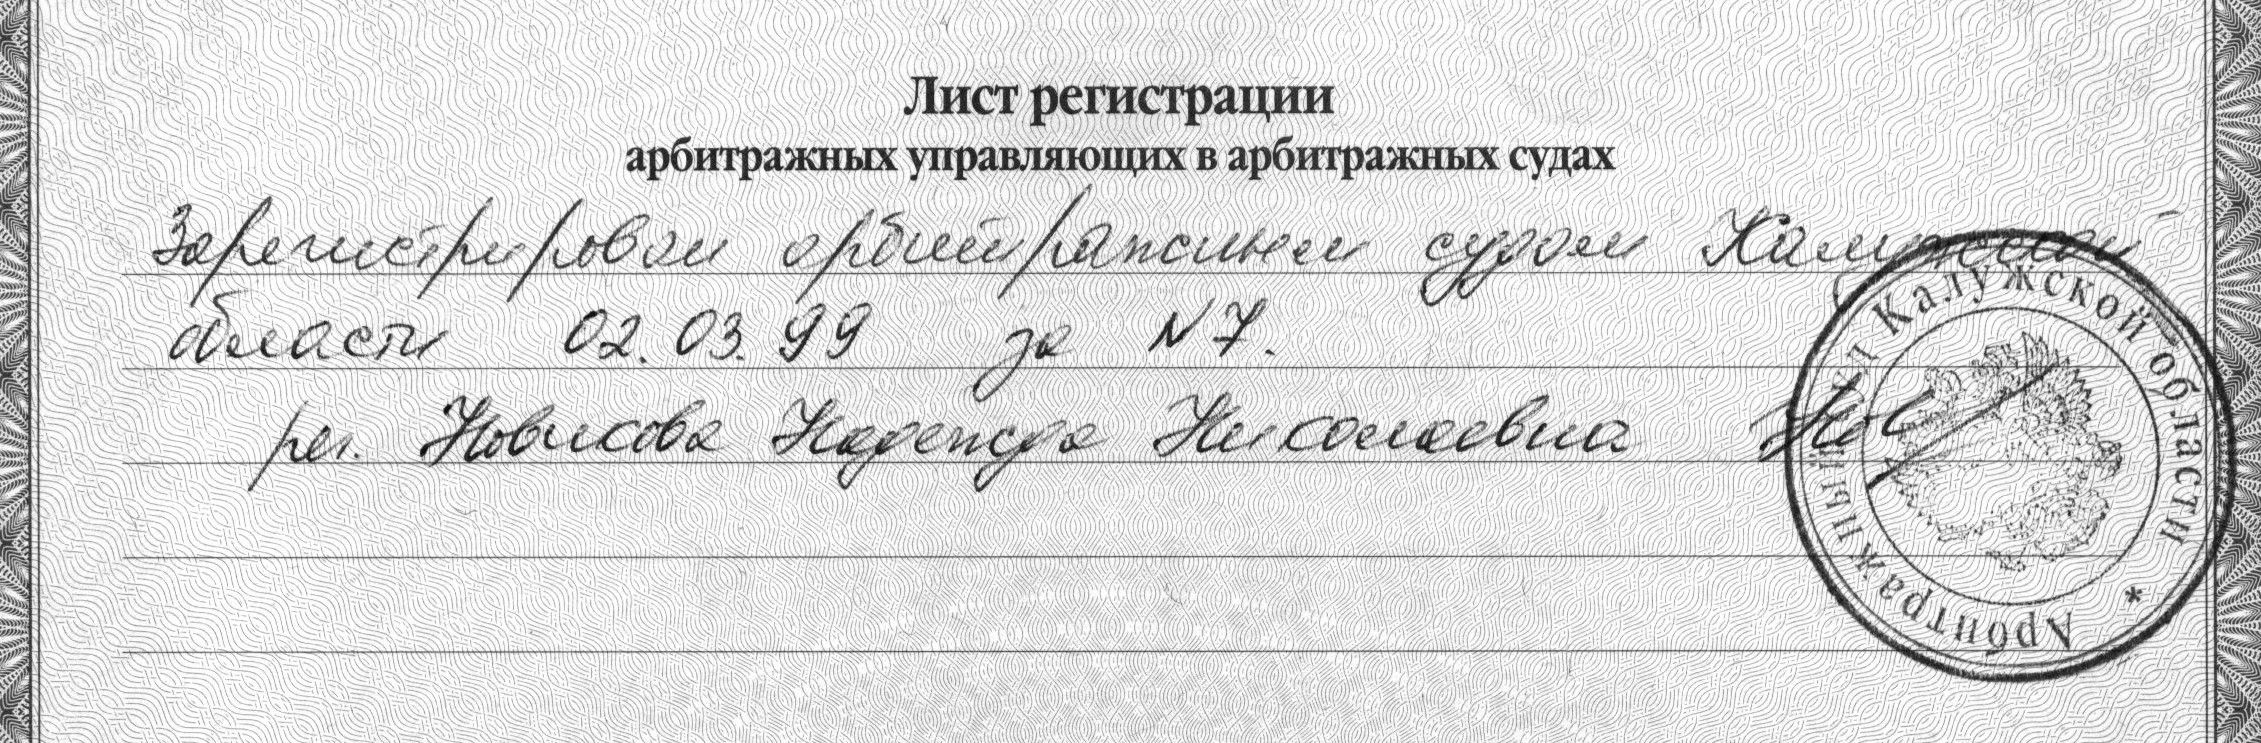 Лист регистрации
арбитражных управляющих в арбитражных судах
Зарегистрирован арбитражным судом Калужской
области 02.03.99 за N7.
рег. Новикова Надежда Николаевна Нов
Арбитражный суд Калужской области *